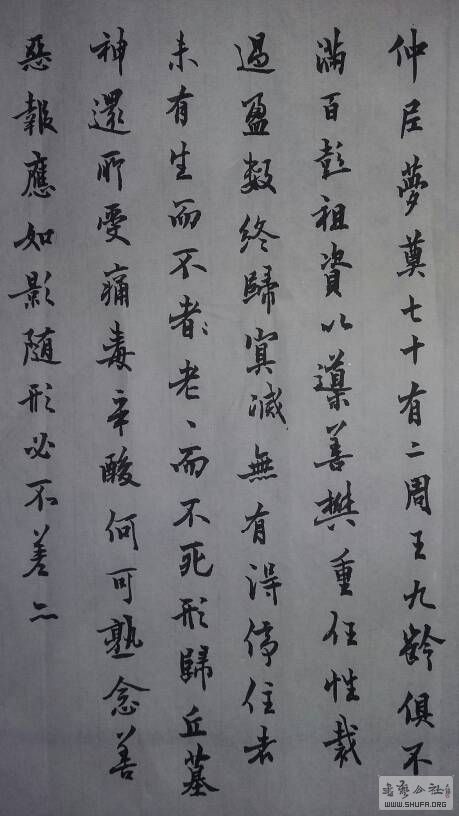 仲尼夢奠七十有二周王九齡俱不
滿百彭祖資以導善樊重任性裁
過盈数終歸冥滅無有得停住者
未有生而不者老、而不死形歸丘墓
神還所受痛毒辛酸何可熟念善
惡報應如影随形必不善二
書藝公社
WWW.SHUFA.ORG